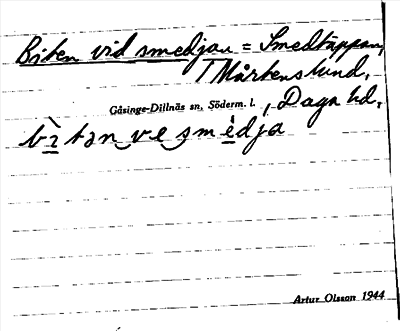 Biten vid smedjan = Smedtäppan,
T Mårtenslund,
Gåsinge-Dillnäs sn, Söderm. l., Daga hd.
bı̀tən ve smèdja
Artur Olsson 1944